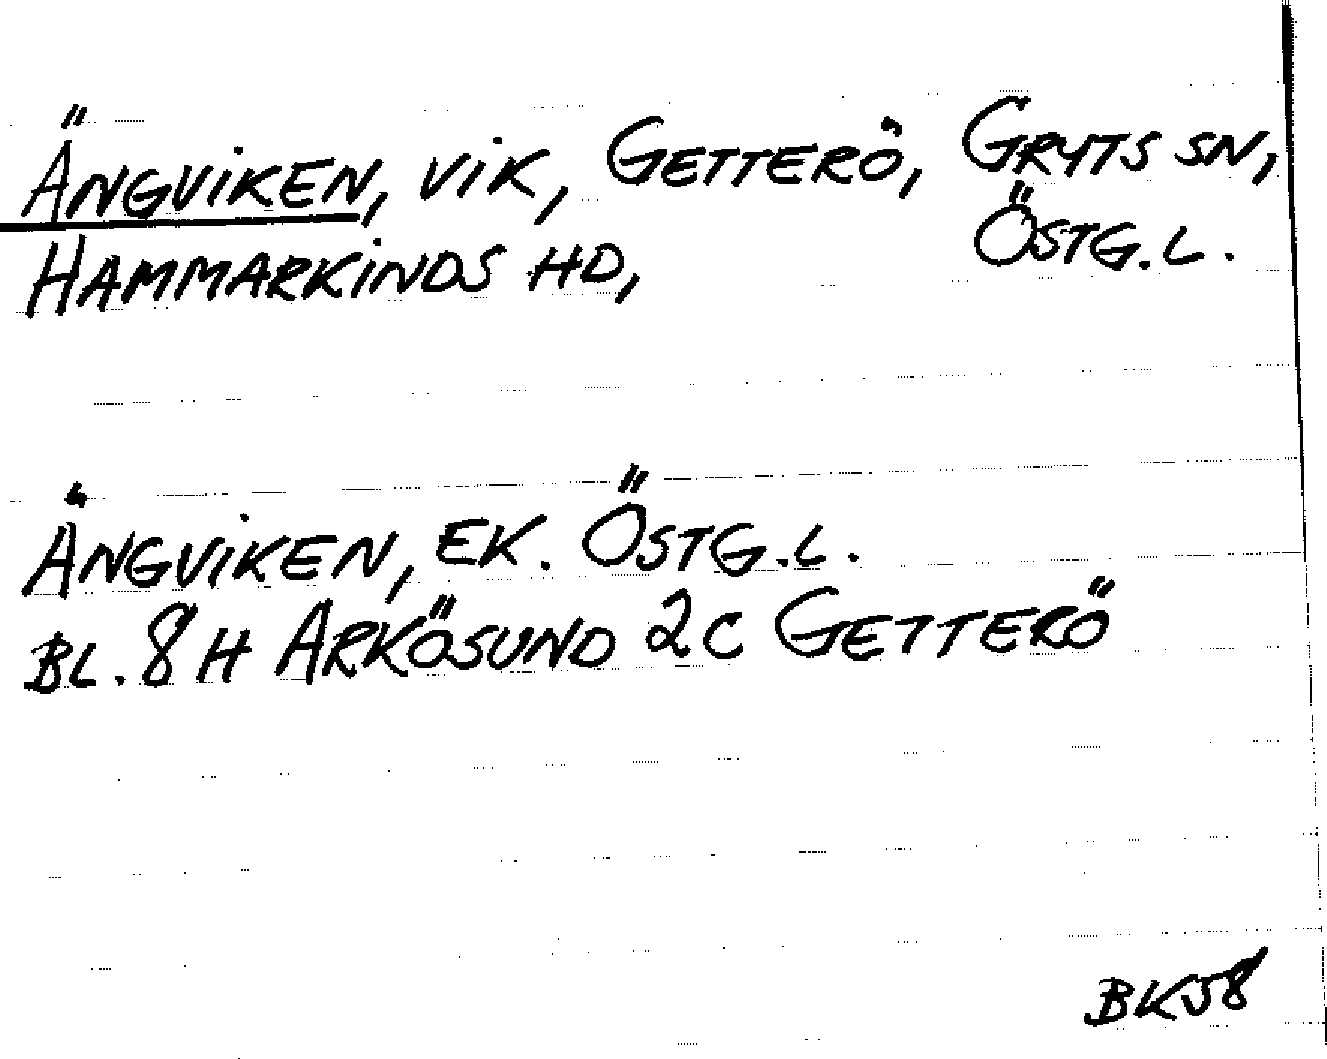 Ängviken, vik, Getterö, Gryts sn,
Hammarkinds hd, Östg.l.
Ängviken, ek. Östg.l.
bl. 8 H Arkösund 2c Getterö
BK58